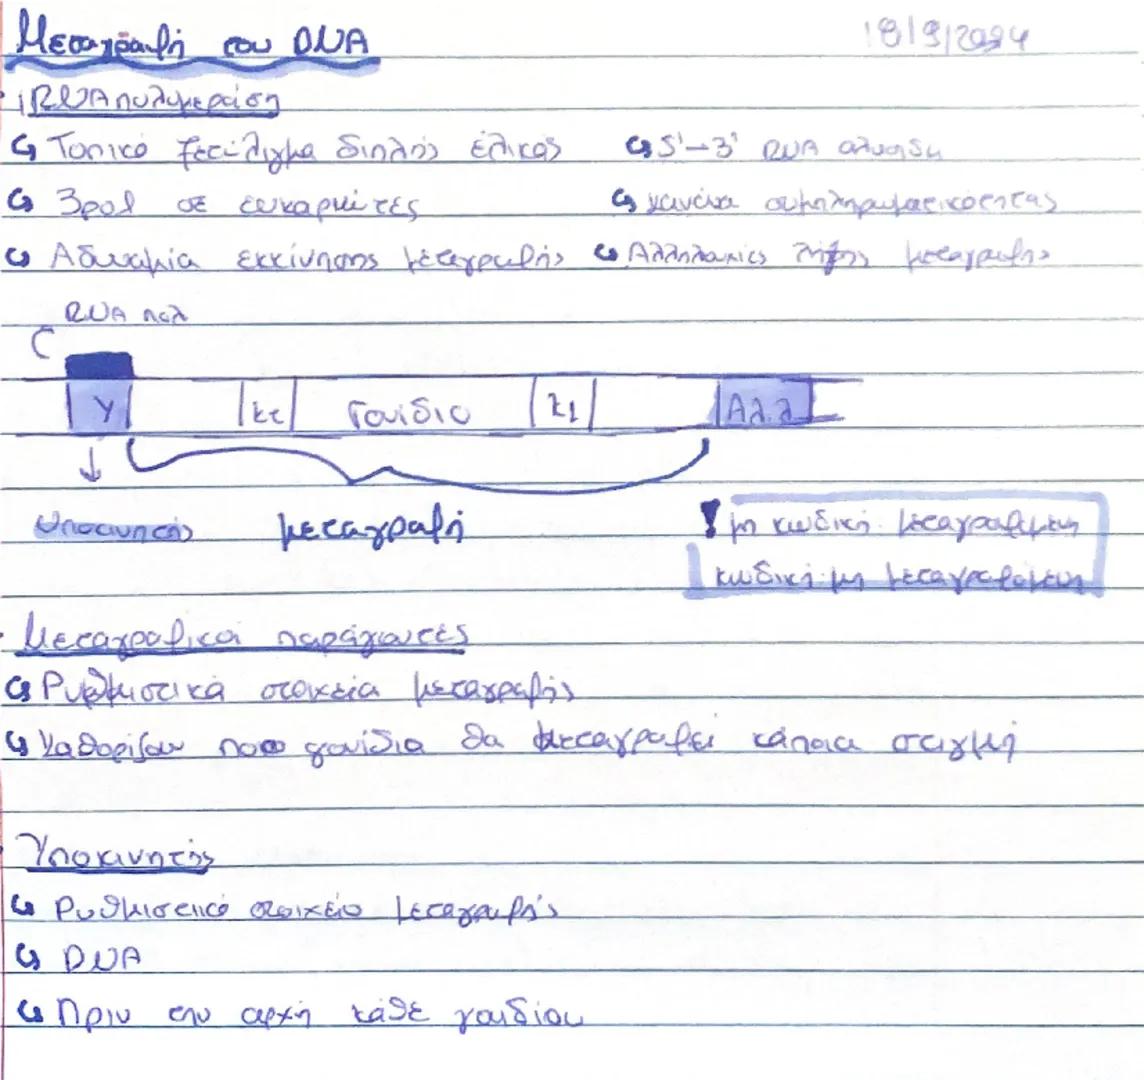 Μεταγραφή του DNA 18/9/2024
RNA πολυμεράση
Τοπικό ξετύλιγμα διπλής έλικας 5'-3' RNA αλυσίδα
3 ροή σε ευκαρυώτες κανόνα συμπληρωματικότητας
Αδυναμία εκκίνησης μεταγραφής Αλληλουχίες λήξης μεταγραφής
RNA πολ
Υ Γονίδιο Αλ.λ
Υποκινητής μεταγραφή ! μη κωδική: μεταγραφόμενη
κωδική: μη μεταγραφόμενη
Μεταγραφικοί παράγοντες
Ρυθμιστικά στοιχεία μεταγραφής
Καθορίζουν ποιο γονίδια θα μεταγραφεί κάποια στιγμή
Υποκινητής
Ρυθμιστικό στοιχείο μεταγραφής
DNA
Πριν την αρχή κάθε γονιδίου